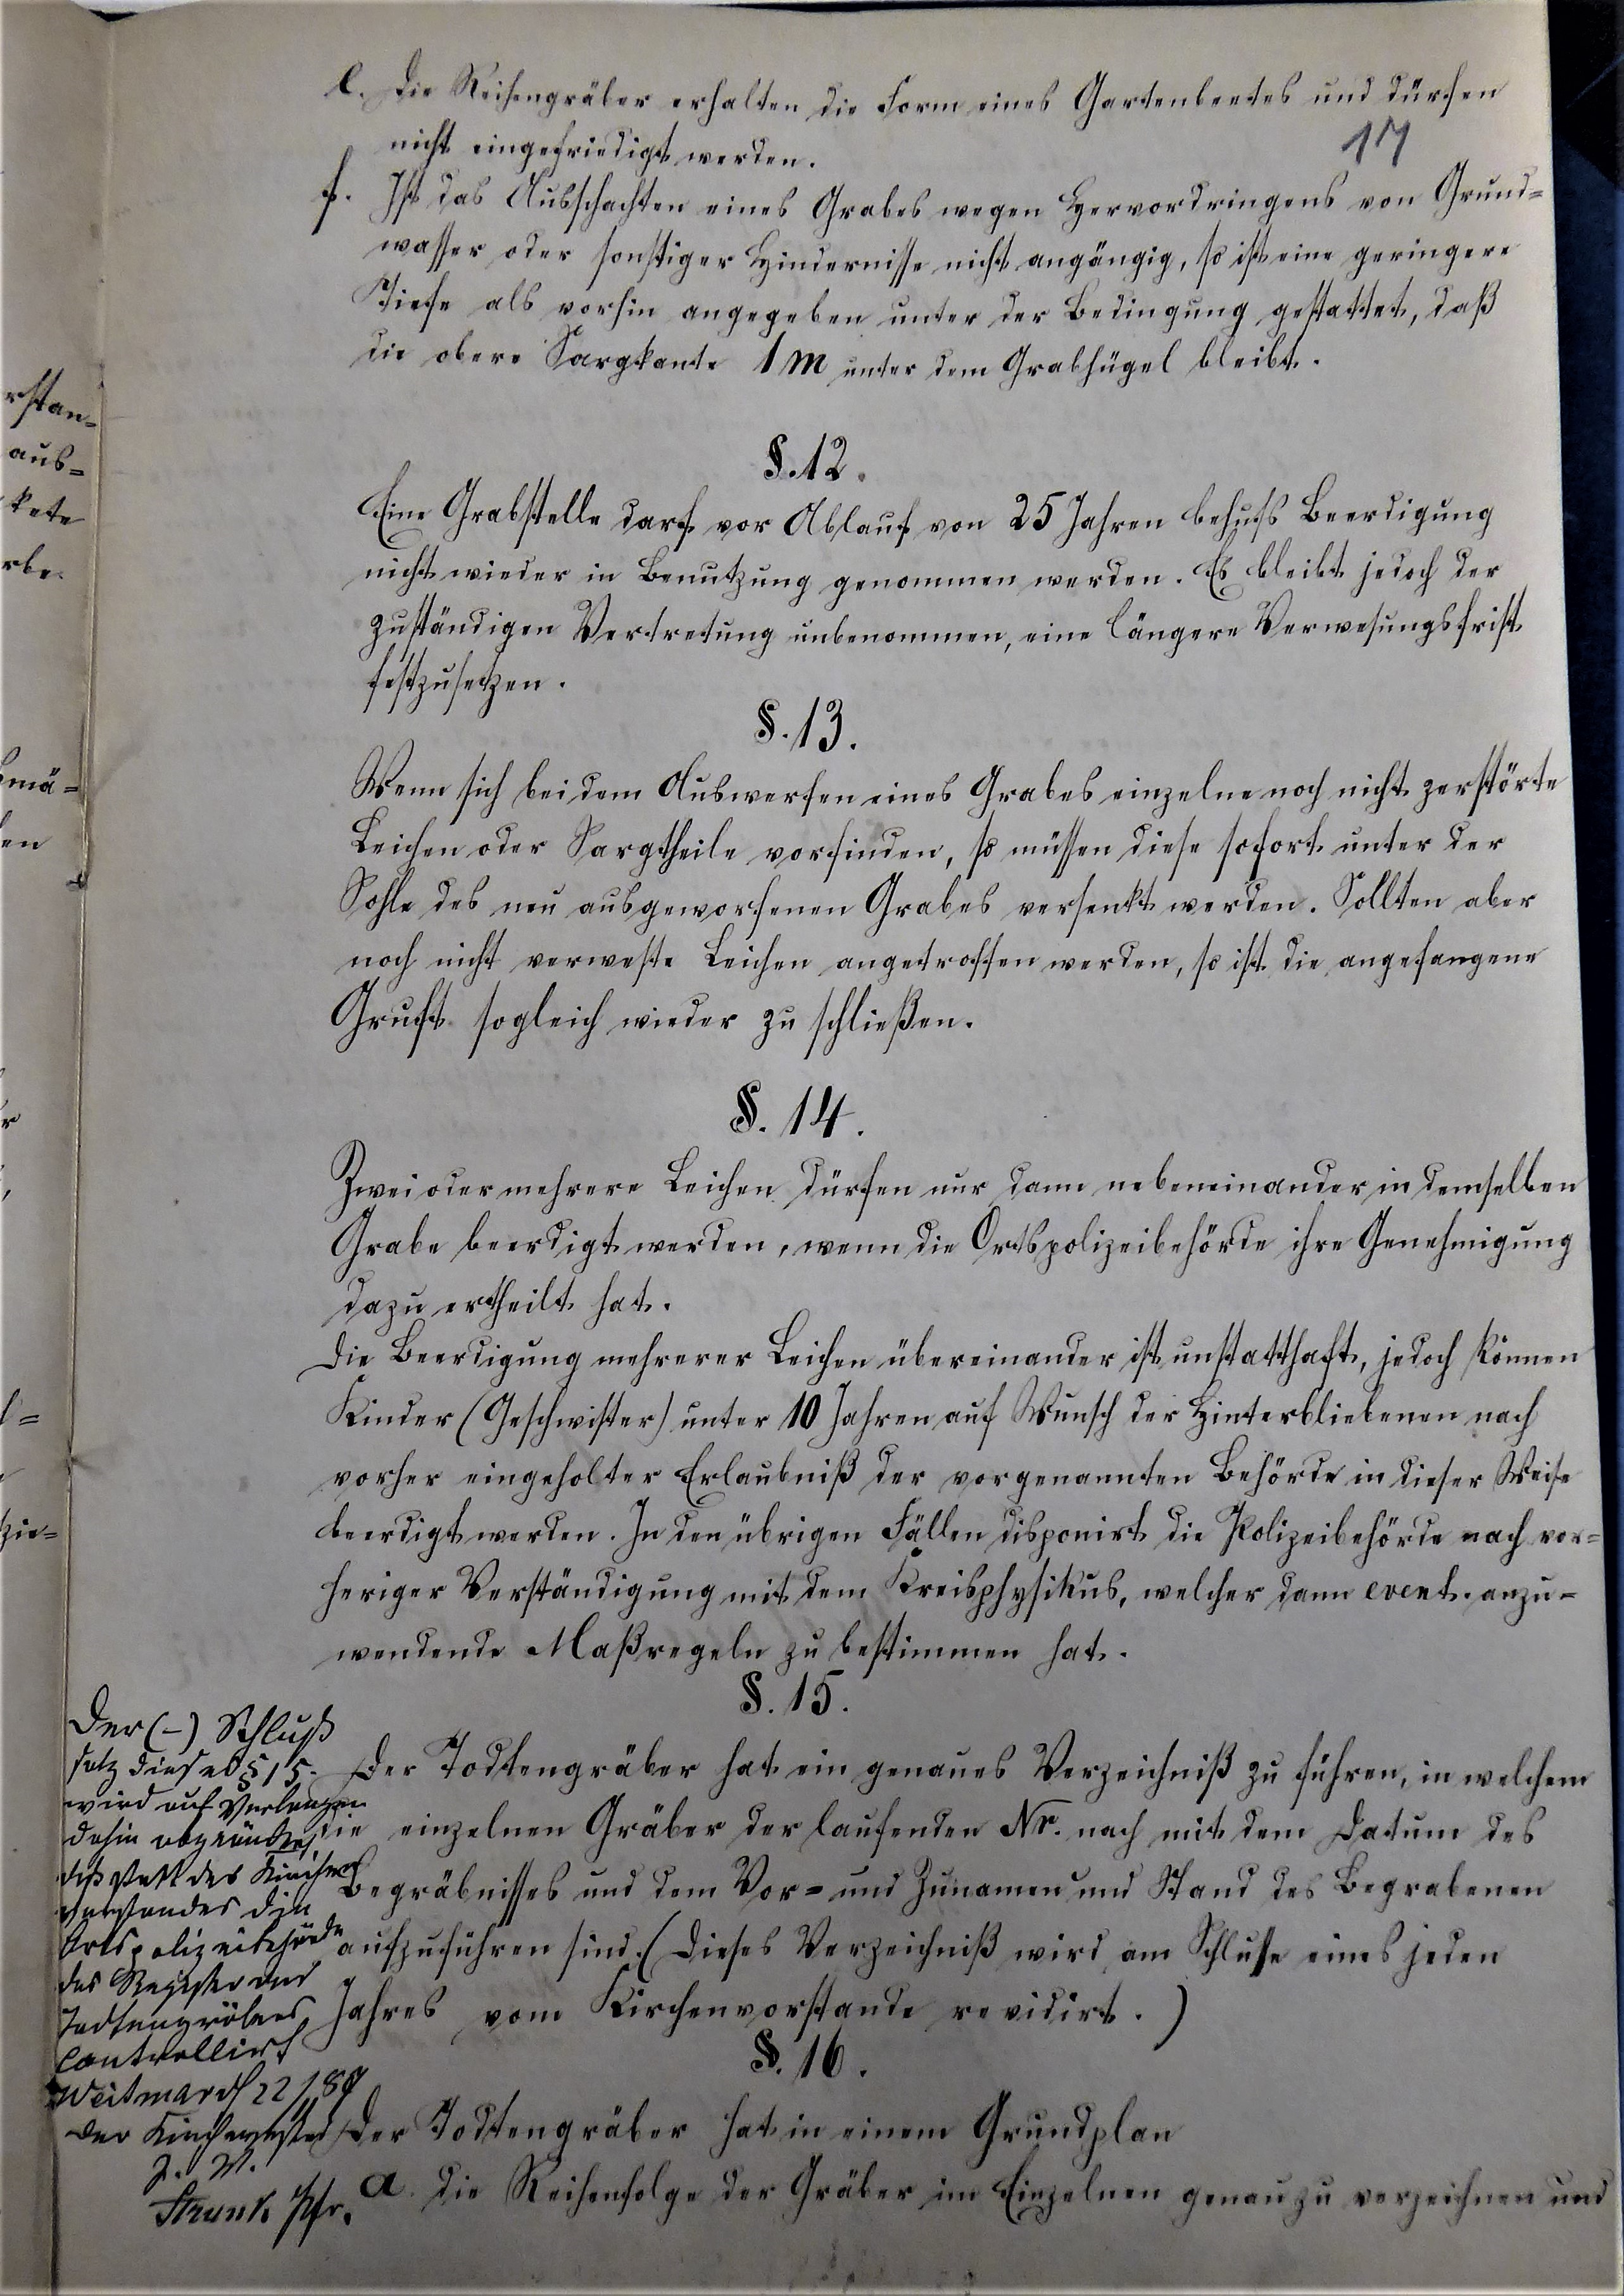 e. Die Reihengräber erhalten die Form eines Gartenbeetes und dürfen
nicht eingefriedigt werden.
17
f. Ist das Ausschachten eines Grabes wegen Hervordringens von Grund=
wasser oder sonstiger Hindernisse nicht angängig, so ist eine geringere
Tiefe als vorhin angegeben unter der Bedingung gestattet, daß
die obere Sargkante 1 m unter dem Grabhügel bleibt.
§. 12.
Eine Grabstelle darf vor Ablauf von 25 Jahren behufs Beerdigung
nicht wieder in Benutzung genommen werden. Es bleibt jedoch der
zuständigen Vertretung unbenommen, eine längere Verwesungsfrist
festzusetzen.
§. 13.
Wenn sich bei dem Auswerfen eines Grabes einzelne noch nicht zerstörte
Leichen oder Sargtheile vorfinden, so müssen diese sofort unter der
Sohle des neu ausgeworfenen Grabes versenkt werden. Sollten aber
noch nicht verweste Leichen angetroffen werden, so ist die angefangene
Gruft sogleich wieder zu schließen.
§. 14.
Zwei oder mehrere Leichen dürfen nur dann nebeneinander in demselben
Grabe beerdigt werden, wenn die Ortspolizeibehörde ihre Genehmigung
dazu ertheilt hat.
Die Beerdigung mehrerer Leichen übereinander ist unstatthaft, jedoch können
Kinder (Geschwister) unter 10 Jahren auf Wunsch der Hinterbliebenen nach
vorher eingeholter Erlaubniß der vorgenannten Behörde in dieser Weise
beerdigt werden. In den übrigen Fällen disponirt die Polizeibehörde nach vor=
heriger Verständigung mit dem Kreisphysikus, welcher dann event. anzu=
wendende Maßregeln zu bestimmen hat.
§. 15.
Der Todtengräber hat ein genaues Verzeichniß zu führen, in welchem
die einzelnen Gräber der laufenden Nr. nach mit dem Datum des
Begräbnisses und dem Vor= und Zunamen und Stand des Begrabenen
aufzuführen sind. (Dieses Verzeichniß wird am Schlusse eines jeden
Jahres vom Kirchenvorstande revidirt.)
§. 16.
Der Todtengräber hat in einem Grundplan
a. die Reihenfolge der Gräber im Einzelnen genau zu verzeichnen und
Der (–) Schluß
satz dieses § 15.
wird auf Verlangen
dahin abgeändert,
daß statt des Kirchen
vorstandes die
Ortspolizeibehörde
das Register des
Todtengräbers
controllirt
Weitmar d 22/
der Kirchenvorstand
J. V.
Strunk Pfr.
rstan=
aus=
kete
rbe
mä=
en
r
l=
zie=